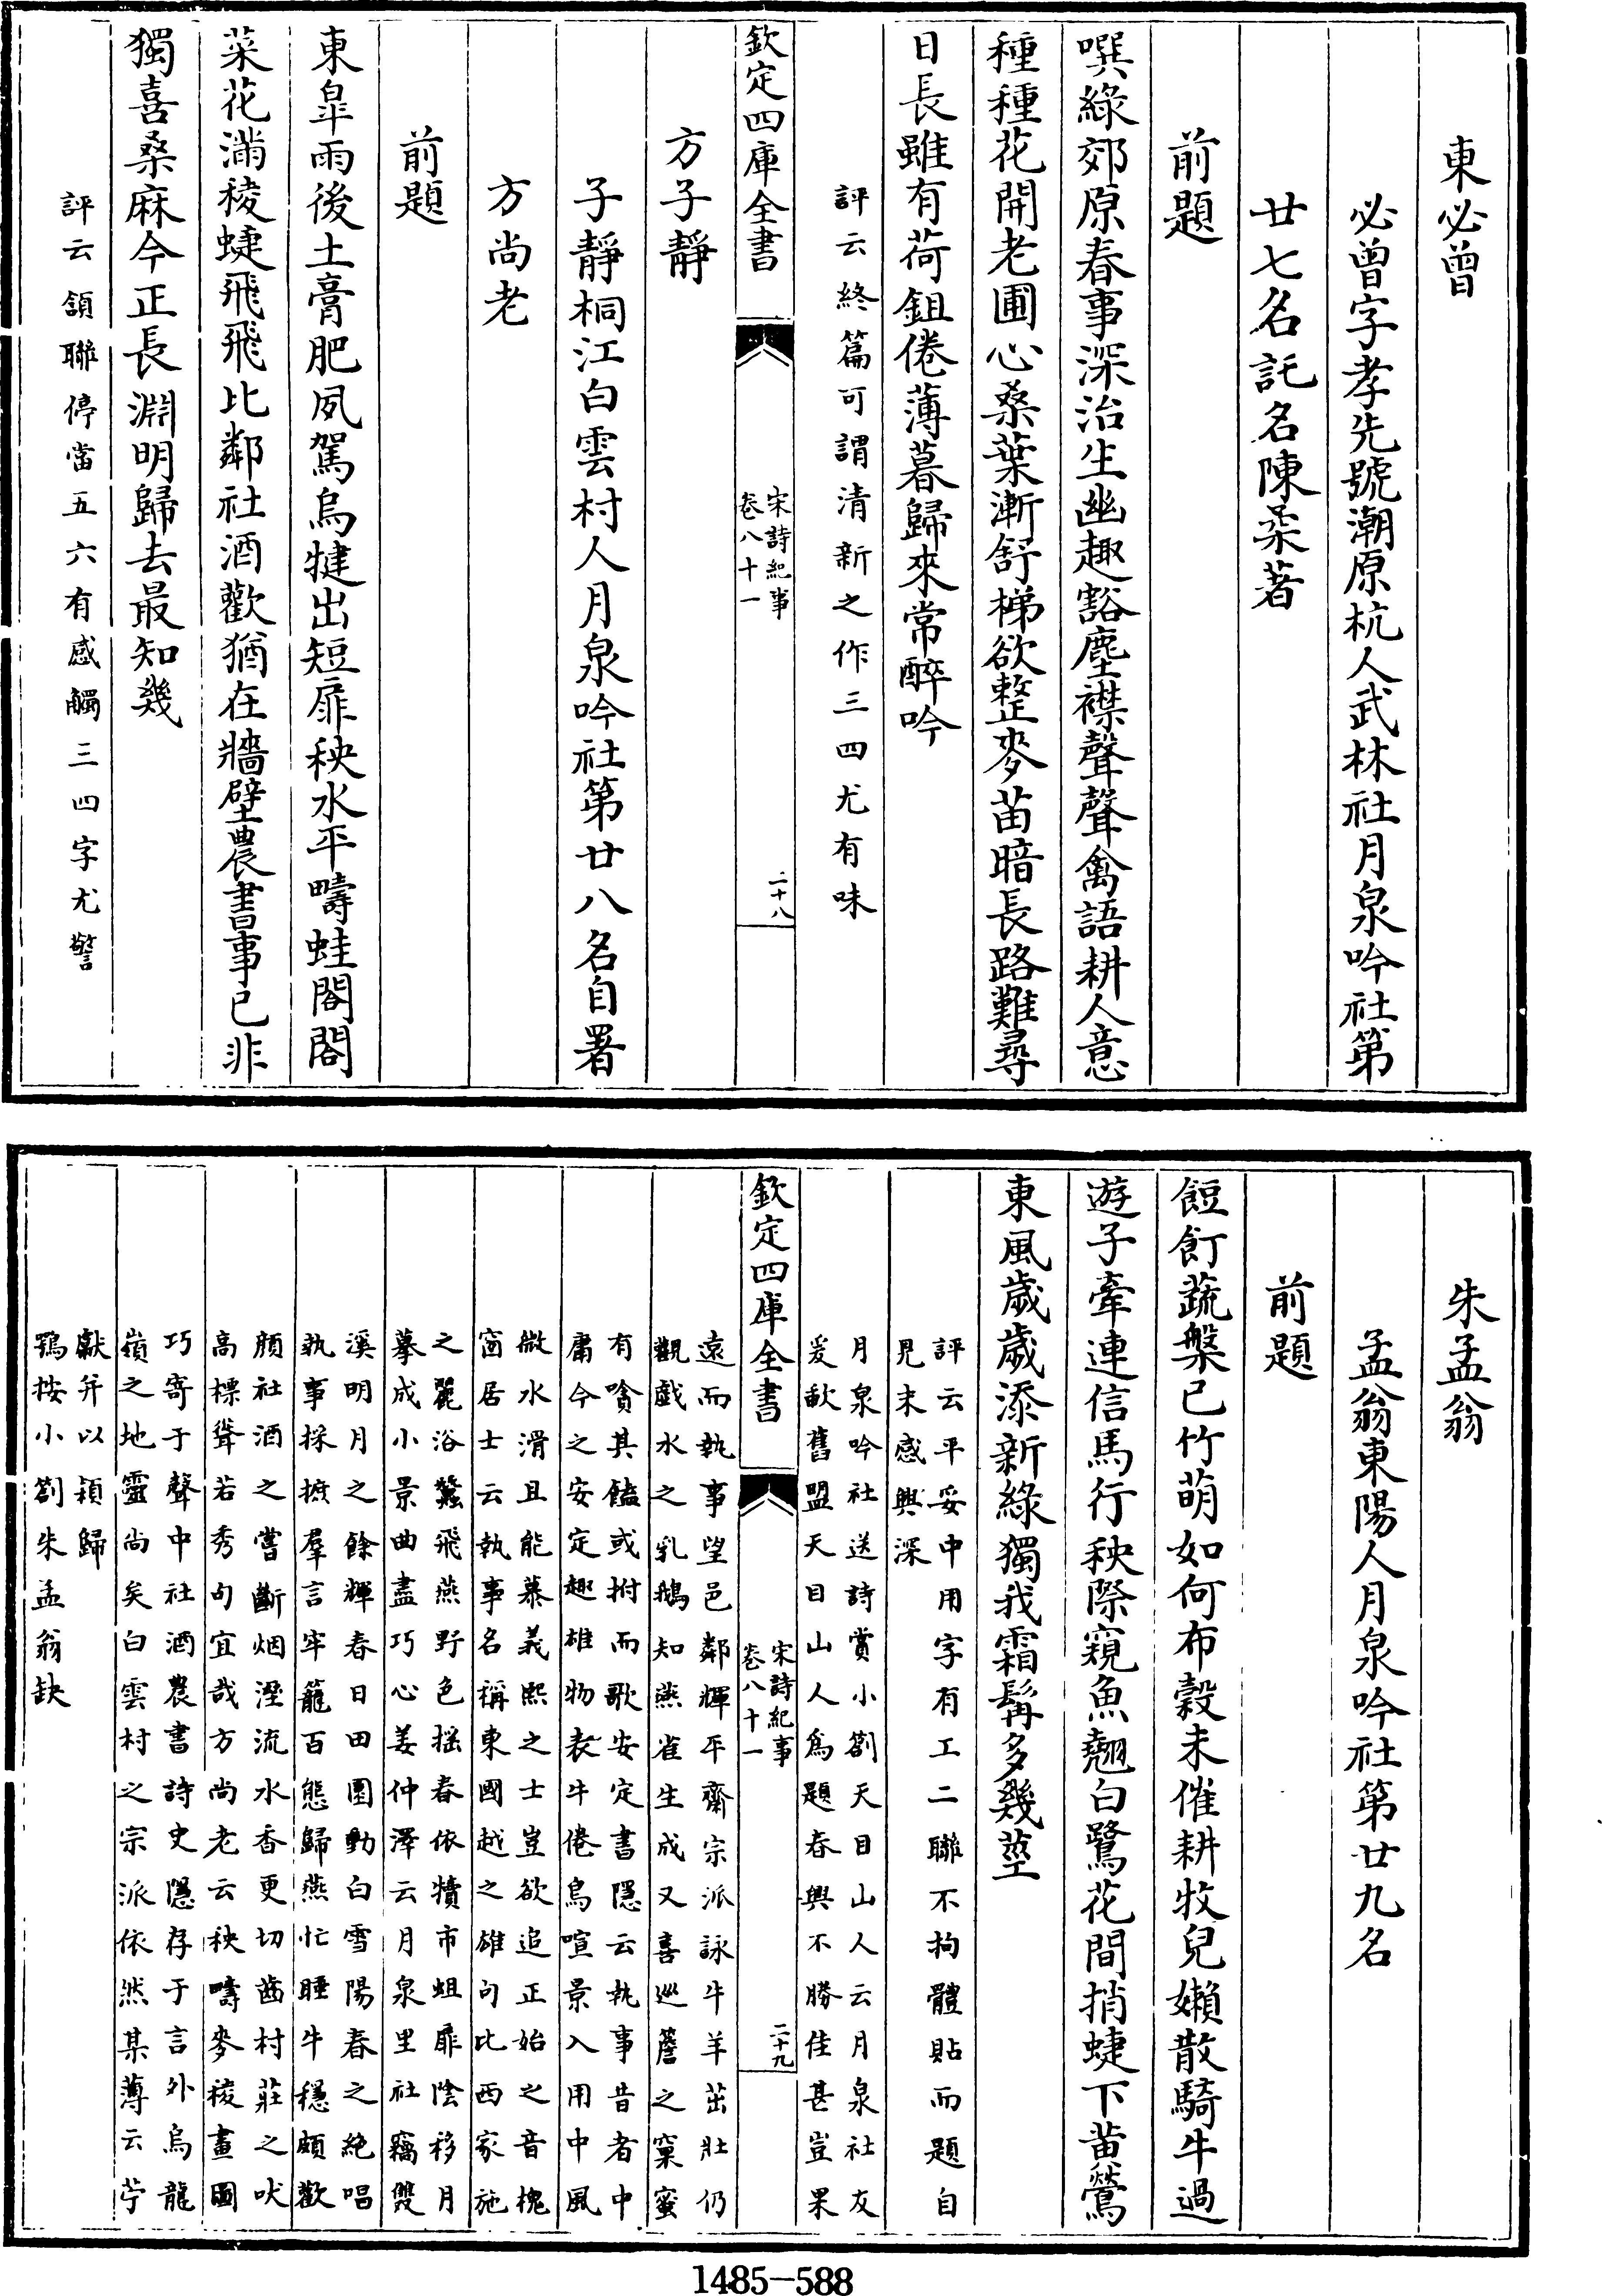 東必曾
必曾字孝先號潮原杭人武林社月泉吟社第
廿七名託名陳柔著
前題
噀綠郊原春事深治生幽趣豁塵襟聲聲禽語耕人意
種種花開老圃心桑葉漸舒梯欲整麥苗暗長路難尋
日長雖有荷鉏倦薄暮歸來常醉吟
評云終篇可謂清新之作三四尤有味
欽定四庫全書
宋詩紀事
卷八十一
二十八
方子靜
子靜桐江白雲村人月泉吟社第廿八名自署
方尚老
前題
東臯雨後土膏肥夙駕烏犍出短扉秧水平疇蛙閣閣
菜花滿稜蜨飛飛比鄰社酒歡猶在牆壁農書事已非
獨喜桑麻今正長淵明歸去最知幾
評云頷聯停當五六有感觸三四字尤警
朱孟翁
孟翁東陽人月泉吟社第廿九名
前題
餖飣蔬槃已竹萌如何布穀未催耕牧兒嬾散騎牛過
遊子牽連信馬行秧際窺魚翹白鷺花間捎蜨下黄鶯
東風歲歲添新綠獨我霜髯多幾莖
評云平妥中用字有工二聯不拘體貼而題自
見末感興深
月泉吟社送詩賞小劄天目山人云月泉社友
爰歃舊盟天目山人為題春興不勝佳甚豈果
欽定四庫全書
宋詩紀事
卷八十一
二十九
遠而執事望邑鄰輝平齋宗派詠牛羊茁壯仍
觀戲水之乳鵝知燕雀生成又喜巡簷之窠蜜
有嗿其饁或拊而歌安定書隱云執事昔者中
庸今之安定趣雄物表牛倦烏喧景入用中風
微水滑且能慕義熙之士豈欲追正始之音槐
窗居士云執事名稱東國越之雄句比西家施
之麗浴蠶飛燕野色搖春依犢市蛆扉陰移月
摹成小景曲盡巧心姜仲澤云月泉里社竊雙
溪明月之餘輝春日田園動白雪陽春之絶唱
執事採摭羣言牢籠百態歸燕忙睡牛穩頗歡
顔社酒之嘗斷烟溼流水香更切齒村莊之吠
高標聳若秀句宜哉方尚老云秧疇麥稜畫圖
巧寄于聲中社酒農書詩史隱存于言外烏龍
嶺之地靈尚矣白雲村之宗派依然某薄云苧
獻并以穎歸
鶚按小劄朱孟翁缺
1485-588